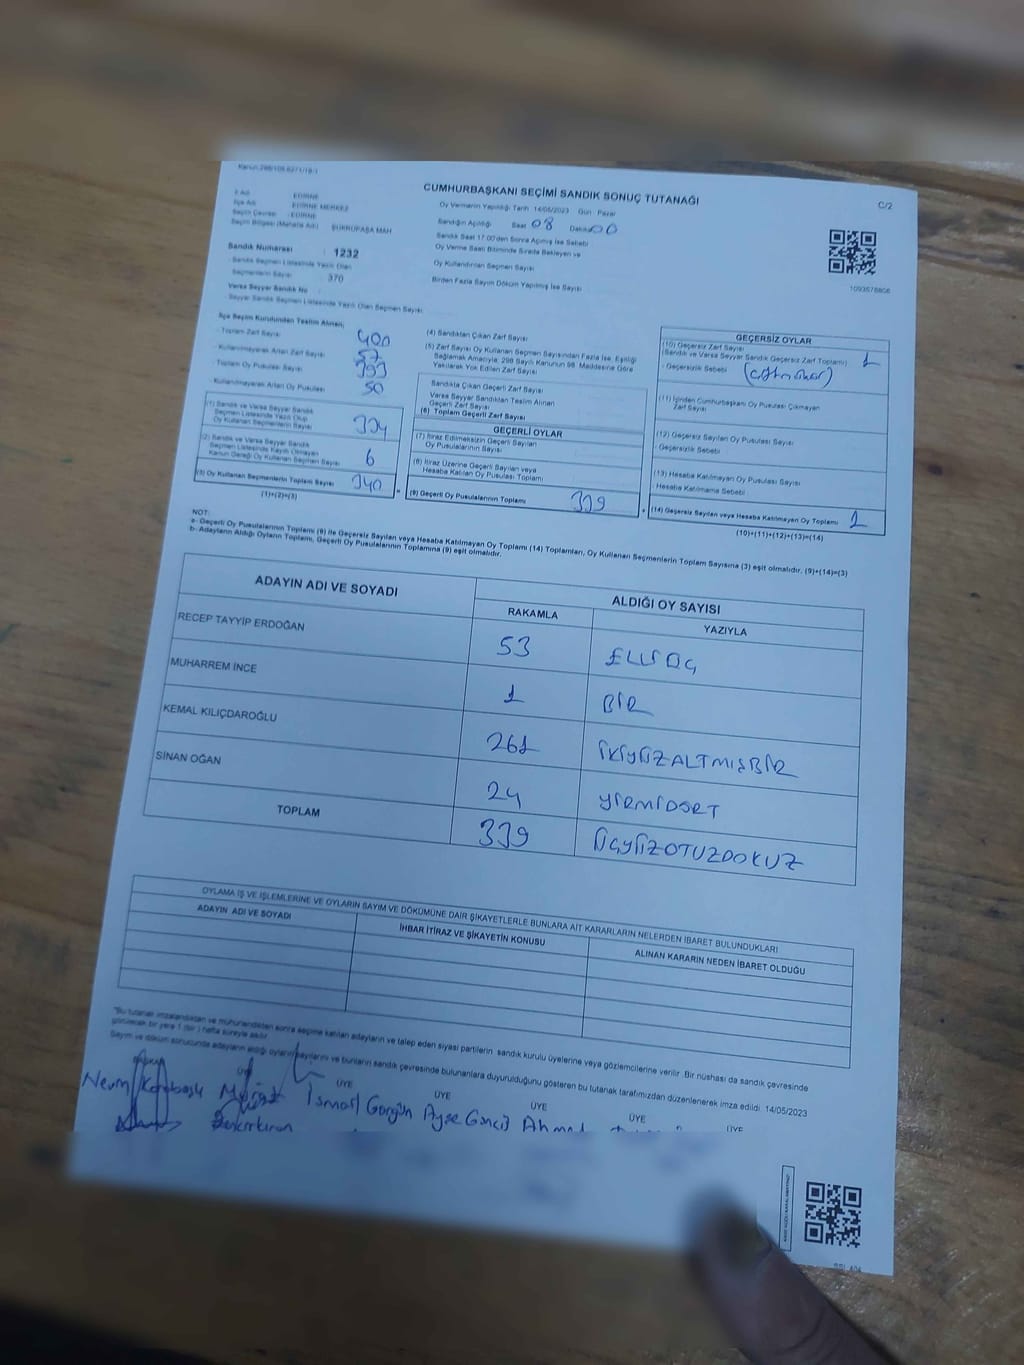 Kanun:298/105-6271/18/1
CUMHURBAŞKANI SEÇİMİ SANDIK SONUÇ TUTANAĞI
C/2
İl Adı : EDİRNE
İlçe Adı : EDİRNE MERKEZ
Seçim Çevresi : EDİRNE
Seçim Bölgesi (Mahalle Adı) : ŞÜKRÜPAŞA MAH
Oy Vermenin Yapıldığı Tarih 14/05/2023 Gün Pazar
Sandığın Açıldığı Saat 08 Dakika 00
Sandık Saat 17:00'den Sonra Açılmış İse Sebebi
Oy Verme Saati Bitiminde Sırada Bekleyen ve
Oy Kullandırılan Seçmen Sayısı
Birden Fazla Sayım Döküm Yapılmış İse Sayısı
1093578808
Sandık Numarası : 1232
- Sandık Seçmen Listesinde Yazılı Olan
Seçmenlerin Sayısı 370
Varsa Seyyar Sandık No
- Seyyar Sandık Seçmen Listesinde Yazılı Olan Seçmen Sayısı
İlçe Seçim Kurulundan Teslim Alınan;
- Toplam Zarf Sayısı 400
- Kullanılmayarak Artan Zarf Sayısı 57
Toplam Oy Pusulası Sayısı 393
- Kullanılmayarak Artan Oy Pusulası 50
(1) Sandık ve Varsa Seyyar Sandık
Seçmen Listesinde Yazılı Olup
Oy Kullanan Seçmenlerin Sayısı 334
(2) Sandık ve Varsa Seyyar Sandık
Seçmen Listesinde Kayıtlı Olmayan
Kanun Gereği Oy Kullanan Seçmen Sayısı 6
(3) Oy Kullanan Seçmenlerin Toplam Sayısı 340
(1)+(2)=(3)
(4) Sandıktan Çıkan Zarf Sayısı
(5) Zarf Sayısı Oy Kullanan Seçmen Sayısından Fazla İse, Eşitliği
Sağlamak Amacıyla, 298 Sayılı Kanunun 98. Maddesine Göre
Yakılarak Yok Edilen Zarf Sayısı
Sandıkta Çıkan Geçerli Zarf Sayısı
Varsa Seyyar Sandıktan Teslim Alınan
Geçerli Zarf Sayısı
(6) Toplam Geçerli Zarf Sayısı
GEÇERLİ OYLAR
(7) İtiraz Edilmeksizin Geçerli Sayılan
Oy Pusulalarının Sayısı
(8) İtiraz Üzerine Geçerli Sayılan veya
Hesaba Katılan Oy Pusulası Toplamı
(9) Geçerli Oy Pusulalarının Toplamı 339
GEÇERSİZ OYLAR
(10) Geçersiz Zarf Sayısı
(Sandık ve Varsa Seyyar Sandık Geçersiz Zarf Toplamı) 1
- Geçersizlik Sebebi
(11) İçinden Cumhurbaşkanı Oy Pusulası Çıkmayan
Zarf Sayısı
(12) Geçersiz Sayılan Oy Pusulası Sayısı
- Geçersizlik Sebebi
(13) Hesaba Katılmayan Oy Pusulası Sayısı
Hesaba Katılmama Sebebi
(14) Geçersiz Sayılan veya Hesaba Katılmayan Oy Toplamı 1
(10)+(11)+(12)+(13)=(14)
NOT:
a- Geçerli Oy Pusulalarının Toplamı (9) ile Geçersiz Sayılan veya Hesaba Katılmayan Oy Toplamı (14) Toplamları, Oy Kullanan Seçmenlerin Toplam Sayısına (3) eşit olmalıdır. (9)+(14)=(3)
b- Adayların Aldığı Oyların Toplamı, Geçerli Oy Pusulalarının Toplamına (9) eşit olmalıdır.
ADAYIN ADI VE SOYADI
ALDIĞI OY SAYISI
RAKAMLA YAZIYLA
RECEP TAYYİP ERDOĞAN 53 ELLİÜÇ
MUHARREM İNCE 1 BİR
KEMAL KILIÇDAROĞLU 261 İKİYÜZALTMIŞBİR
SİNAN OĞAN 24 YİRMİDÖRT
TOPLAM 339 ÜÇYÜZOTUZDOKUZ
OYLAMA İŞ VE İŞLEMLERİNE VE OYLARIN SAYIM VE DÖKÜMÜNE DAİR ŞİKAYETLERLE BUNLARA AİT KARARLARIN NELERDEN İBARET BULUNDUKLARI
ADAYIN ADI VE SOYADI
İHBAR İTİRAZ VE ŞİKAYETİN KONUSU
ALINAN KARARIN NEDEN İBARET OLDUĞU
"Bu tutanak imzalandıktan ve mühürlendikten sonra seçime katılan adayların ve talep eden siyasi partilerin sandık kurulu üyelerine veya gözlemcilerine verilir. Bir nüshası da sandık çevresinde
görülecek bir yere 1 (bir) hafta süreyle asılır
Sayım ve döküm sonucunda adayların aldığı oyların sayılarını ve bunların sandık çevresinde bulunanlara duyurulduğunu gösteren bu tutanak tarafımızdan düzenlenerek imza edildi. 14/05/2023
BAŞKAN ÜYE ÜYE ÜYE ÜYE ÜYE ÜYE
İsmail Gorgün Ayşe